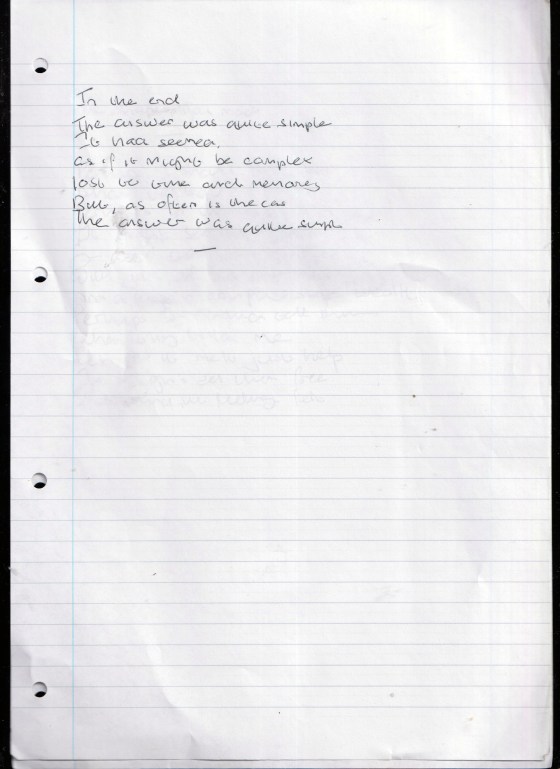 In the end
The answer was quite simple
It had seemed,
as if it might be complex
lost to time and memory
But, as often is the cas
The answer was quite simple